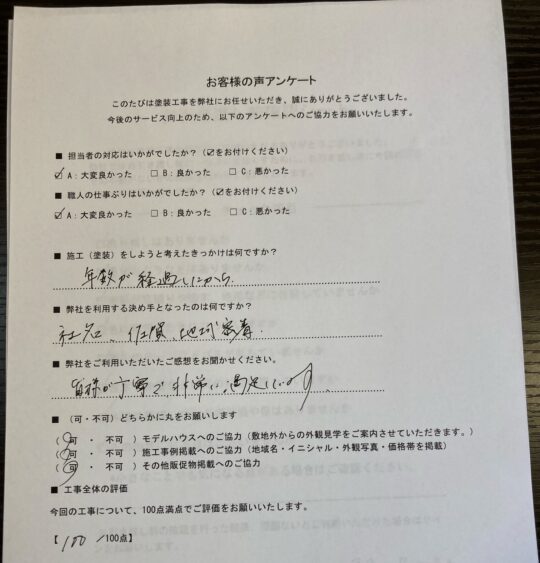 お客様の声アンケート
このたびは塗装工事を弊社にお任せいただき、誠にありがとうございました。
今後のサービス向上のため、以下のアンケートへのご協力をお願いいたします。
■ 担当者の対応はいかがでしたか？（☑をお付けください）
☑ A：大変良かった　□ B：良かった　□ C：悪かった
■ 職人の仕事ぶりはいかがでしたか？（☑をお付けください）
☑ A：大変良かった　□ B：良かった　□ C：悪かった
■ 施工（塗装）をしようと考えたきっかけは何ですか？
年数が経過したから
■ 弊社を利用する決め手となったのは何ですか？
社名、佐賀、地域密着.
■ 弊社をご利用いただいたご感想をお聞かせください。
皆様が丁寧で非常に満足しています
■ （可・不可）どちらかに丸をお願いします
（ 可 ・ 不可 ）モデルハウスへのご協力（敷地外からの外観見学をご案内させていただきます。）
（ 可 ・ 不可 ）施工事例掲載へのご協力（地域名・イニシャル・外観写真・価格帯を掲載）
（ 可 ・ 不可 ）その他販促物掲載へのご協力
■ 工事全体の評価
今回の工事について、100点満点でご評価をお願いいたします。
【 100 ／100点】